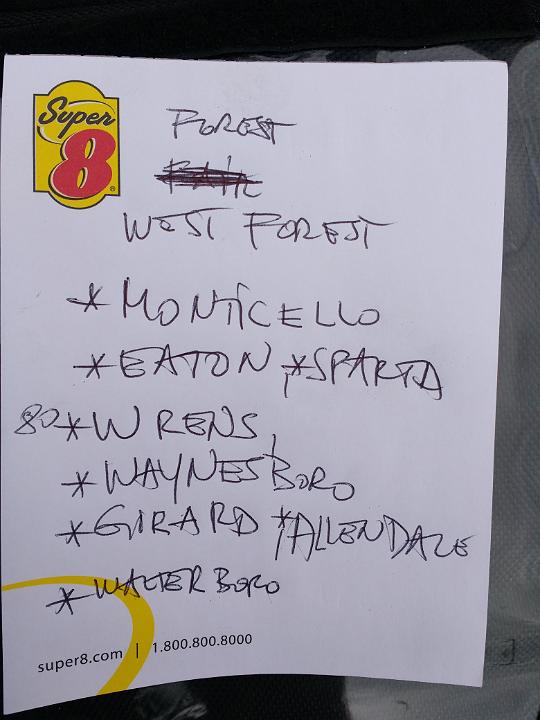 Super 8®
FOREST
WEST FOREST
* MONTICELLO
* EATON, * SPARTA
80 * WRENS,
* WAYNESBORO
* GIRARD * ALLENDALE
* WALTERBORO
super8.com | 1.800.800.8000